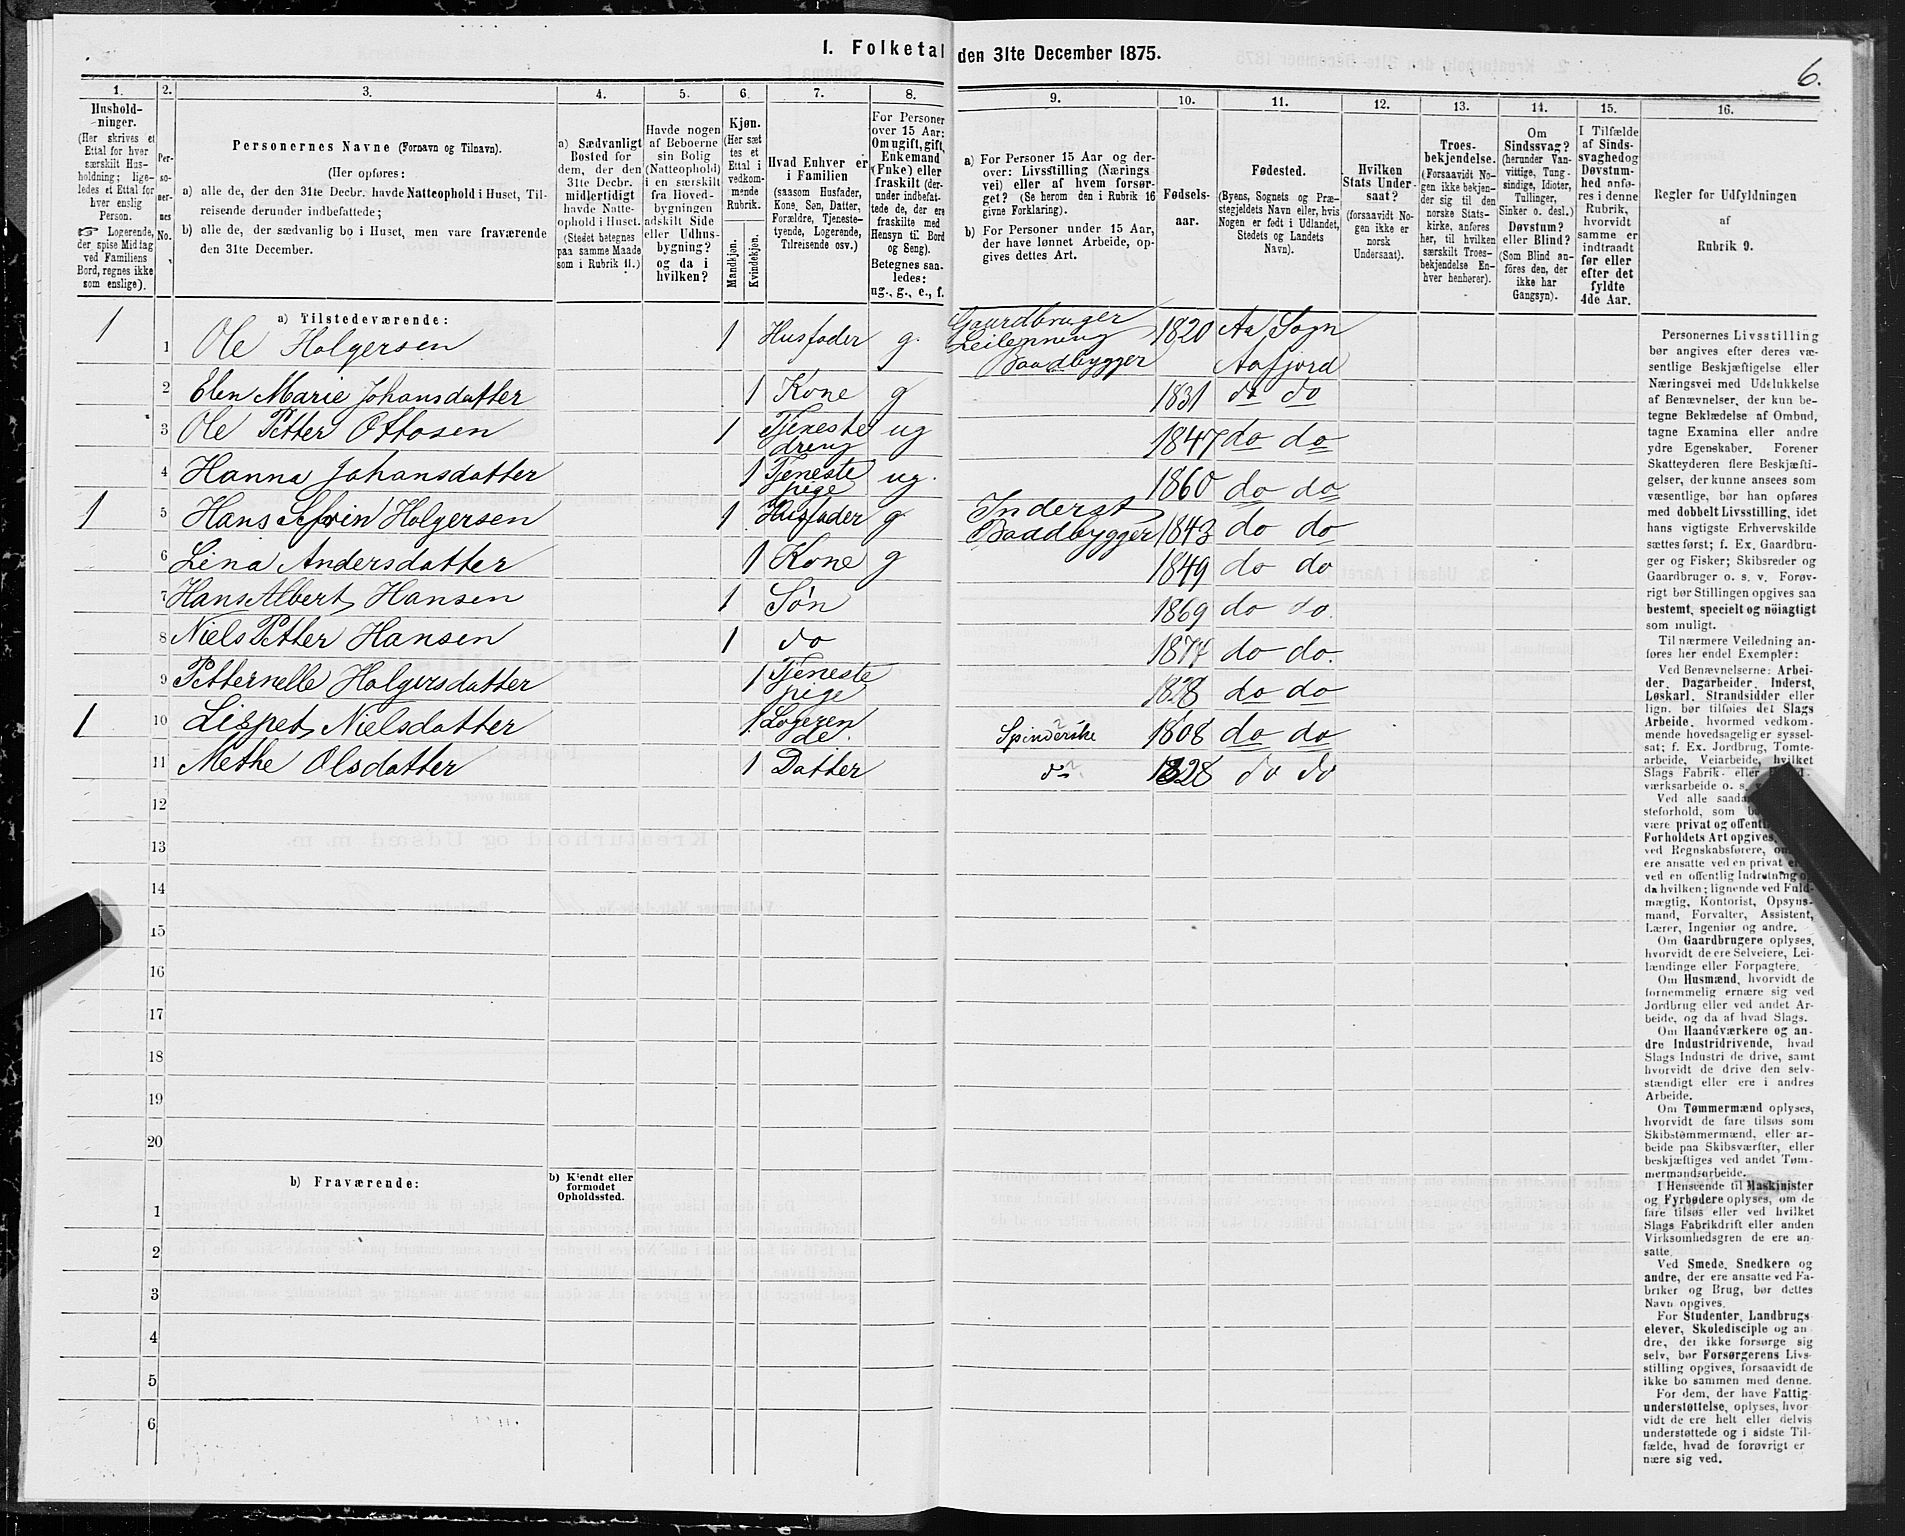 I. Folketal den 31te December 1875.
6.
1.
2.
3.
4.
5.
6.
7.
8.
9.
10.
11.
12.
13.
14.
15.
16.
Hushold-
ninger.
(Her skrives et
Ettal for hver
særskilt Hus-
holdning; lige-
ledes et Ettal for
hver enslig
Person.
☞ Logerende,
der spise Middag
ved Familiens
Bord, regnes ikke
som enslige).
Per-
so-
ner-
nes
No.
Personernes Navne (Fornavn og Tilnavn).
(Her opføres:
a) alle de, der den 31te Decbr. havde Natteophold i Huset, Til-
reisende derunder indbefattede;
b) alle de, der sædvanlig bo i Huset, men vare fraværende
den 31te December.
a) Sædvanligt
Bosted for
dem, der den
31te Decbr.
midlertidigt
havde Natte-
ophold i Huset.
(Stedet betegnes
paa samme Maade
som i Rubrik 11.)
Havde nogen
af Beboerne
sin Bolig
(Natteophold)
i en særskilt
fra Hoved-
bygningen
adskilt Side
eller Udhus-
bygning?
og da i
hvilken?
Kjøn.
(Her sæt
tes et
Ettal i
vedkom-
mende
Rubrik.
Mandkjøn.
Kvindekjøn.
Hvad Enhver er
i Familien
(saasom Husfader,
Kone, Søn, Datter,
Forældre, Tjeneste-
tyende, Logerende,
Tilreisende osv.)
For Personer
over 15 Aar:
Om ugift, gift,
Enkemand
(Enke) eller
fraskilt (der-
under indbefat-
tede de, der ere
fraskilte med
Hensyn til Bord
og Seng).
Betegnes saa-
ledes:
ug., g., e., f.
a) For Personer 15 Aar og der-
over: Livsstilling (Nærings
vei) eller af hvem forsør-
get? (Se herom den i Rubrik 16
givne Forklaring).
b) For Personer under 15 Aar,
der have lønnet Arbeide, op-
gives dettes Art.
Fødsels-
aar.
Fødested.
(Byens, Sognets og Præ-
stegjeldets Navn eller, hvis
Nogen er født i Udlandet,
Stedets og Landets
Navn).
Hvilken
Stats Under-
saat?
(forsaavidt No-
gen ikke er
norsk
Undersaat).
Troes-
bekjendelse.
(Forsaavidt No
gen ikke bekjen-
der sig til den
norske Stats-
kirke, anføres
her, til hvilken
særskilt Troes-
bekjendelse En-
hver henhører).
Om
Sindssvag?
(herunder Van-
vittige, Tung-
sindige, Idioter,
Tullinger,
Sinker o. desl.)
Døvstum?
eller Blind?
(Som Blind an-
føres den, der
ikke har
Gangsyn).
I Tilfælde
af Sinds-
svaghed og
Døvstum-
hed anfø-
res i denne
Rubrik,
hvorvidt
samme er
indtraadt
før eller
efter det
fyldte
4de Aar.
Regler for Udfyldningen
af
Rubrik 9.
a) Tilstedeværende:
1 1 Ole Holgersen 1 Husfader g. Gaardbruger Leilenning Baadbygger 1820 Aa Sogn Aafjord
2 Elen Marie Johansdatter 1 Kone g 1831 do do
3 Ole Petter Ottosen 1 Tjeneste dreng ug 1847 do do
4 Hanna Johansdatter 1 Tjeneste pige ug. 1860 do do
1 5 Hans Holgersen 1 Husfader g Inderst Baadbygger 1843 do do
6 Lina Andersdatter 1 Kone g 1849 do do
7 Hans Albert Hansen 1 Søn 1869 do do.
8 Niels Petter Hansen 1 do do do.
9 Petternelle Holgersdatter 1 Tjeneste pige do do
1 10 Lispet Nielsdatter 1 Logeren de. Spinderske 1808 do do
11 Methe Olsdatter 1 Datter do 1828 do do
12
13
14
15
16
17
18
19
20
b) Fraværende:
b) Kjendt eller
formodet
Opholdssted.
1
2
3
4
5
6
Personernes Livsstilling
bør angives efter deres væ-
sentlige Beskjæftigelse eller
Næringsvei med Udelukkelse
af Benævnelser, der kun be-
tegne Beklædelse af Ombud,
tagne Examina eller andre
ydre Egenskaber. Forener
Skatteyderen flere Beskjæfti-
gelser, der kunne ansees som
væsentlige, bør han opføres
med dobbelt Livsstilling, idet
hans vigtigste Erhvervskilde
sættes først; f. Ex. Gaardbru-
ger og Fisker; Skibsreder og
Gaardbruger o. s. v. Forøv-
rigt bør Stillingen opgives saa
bestemt, specielt og nöiagtigt
som muligt.
Til nærmere Veiledning an-
føres her endel Exempler:
Ved Benævnelserne: Arbei-
der, Dagarbeider, Inderst,
Løskarl, Strandsidder eller
lign. bør tilføies det Slags
Arbeide, hvormed vedkom-
mende hovedsagelig er syssel-
sat; f. Ex. Jordbrug, Tomte-
arbeide, Veiarbeide, hvilket
Slags Fabrik- eller
værksarbeide o. s.
Ved alle
steforhold, som
være privat og
Forholdets Art opgives,
ved Regnskabsførere,
ere ansatte ved en privat
ved en offentlig Indretning
da hvilken; lignende ved Fuld-
mægtig, Kontorist, Opsyns-
mand, Forvalter, Assistent,
Lærer, Ingeniør og andre.
Om Gaardbrugere oplyses,
hvorvidt de ere Selveiere, Lei-
lændinge eller Forpagtere.
Om Husmænd, hvorvidt de
fornemmelig ernære sig ved
Jordbrug eller ved andet Ar-
beide, og da af hvad Slags.
Om Haandværkere og an-
dre Industridrivende, hvad
Slags Industri de drive, samt
hvorvidt de drive den selv-
stændigt eller ere i andres
Arbeide.
Om Tømmermænd oplyses,
hvorvidt de fare tilsøs som
Skibstømmermænd, eller ar-
beide paa Skibsværfter, eller
beskjæftiges ved andet Tøm-
mermandsarbeide.
I Henseende til Maskinister
og Fyrbødere oplyses, om de
fare tilsøs eller ved hvilket
Slags Fabrikdrift eller anden
Virksomhedsgren de ere an-
satte.
Ved Smede, Snedkere og
andre, der ere ansatte ved Fa-
briker og Brug, bør dettes
Navn opgives.
For Studenter, Landbrugs-
elever, Skoledisciple og an-
dre, der ikke forsørge sig
selv, bør Forsørgerens Livs-
stilling opgives, forsaavidt de
ikke bo sammen med denne.
For dem, der have Fattig-
understøttelse, oplyses, hvor-
vidt de ere helt eller delvis
understøttede og i sidste Til-
fælde, hvad de forøvrigt er
nære sig ved.